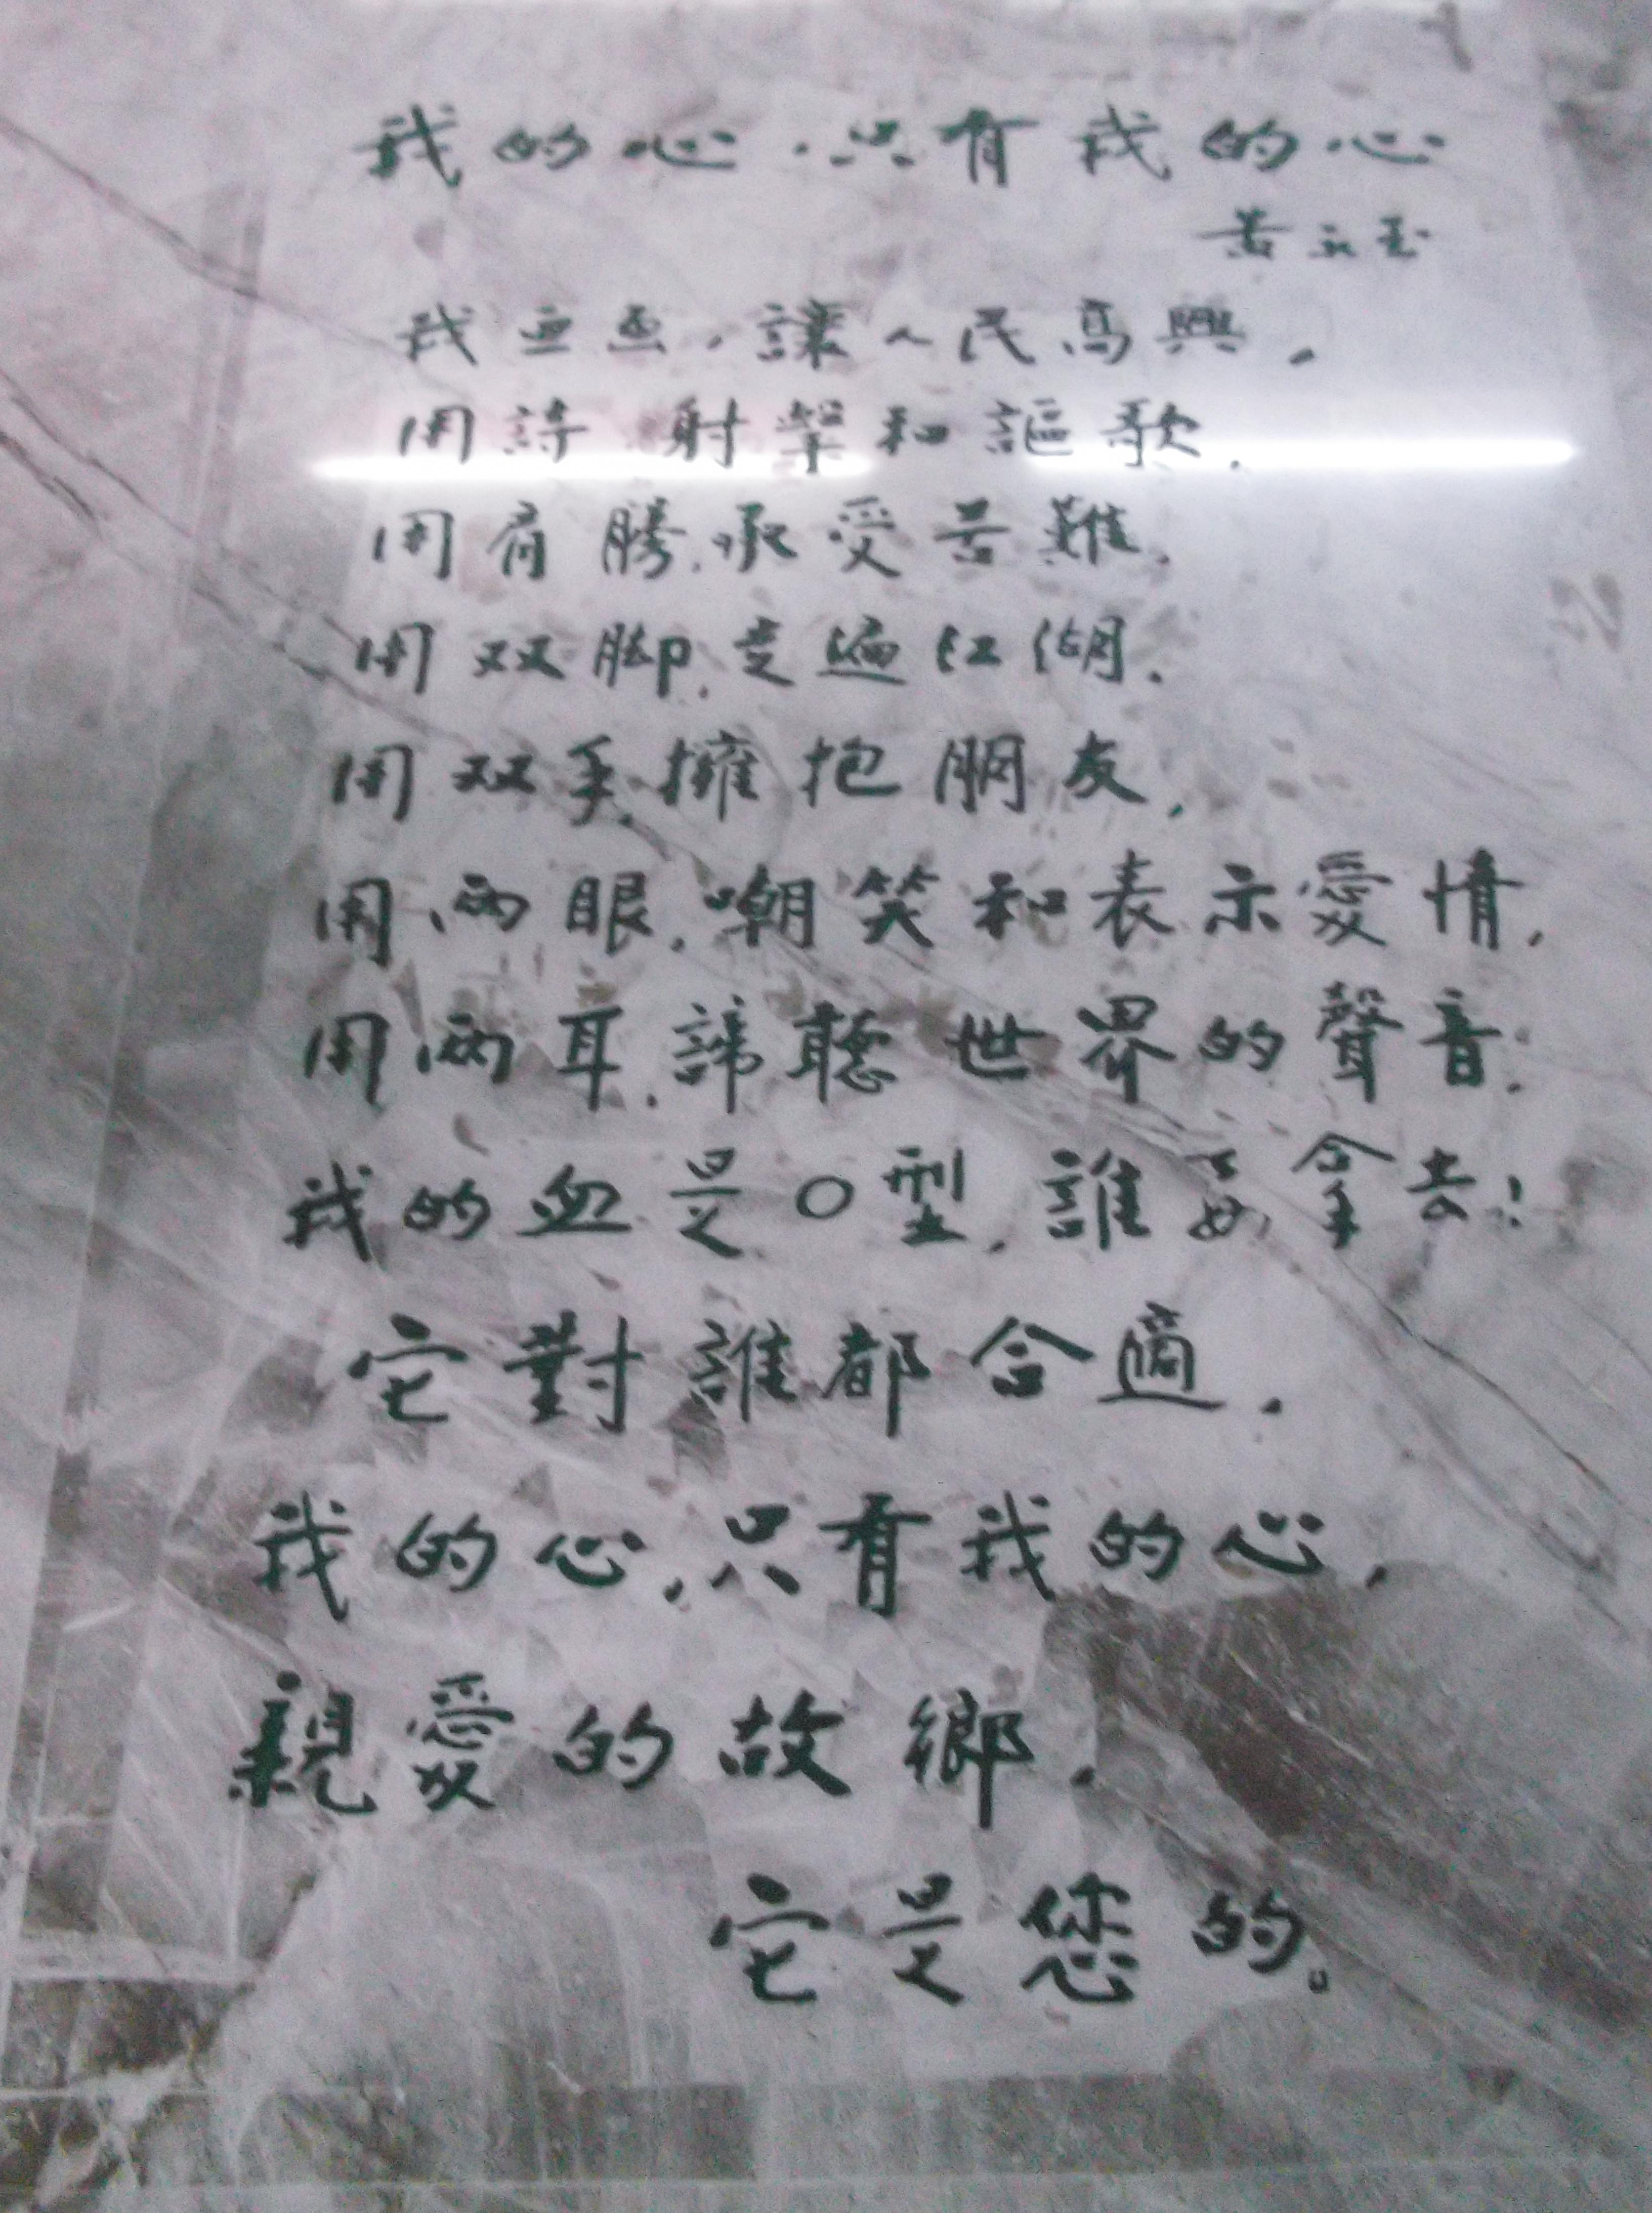 我的心，只有我的心
黃永玉
我畫画，讓人民高興，
用詩 射擊和謳歌，
用肩膀，承受苦難，
用双脚，走遍江湖，
用双手，擁抱朋友，
用兩眼，嘲笑和表示愛情，
用兩耳，諦聽世界的聲音，
我的血是O型，誰要拿去！
它對誰都合適，
我的心，只有我的心，
親愛的故鄉，
它是您的。